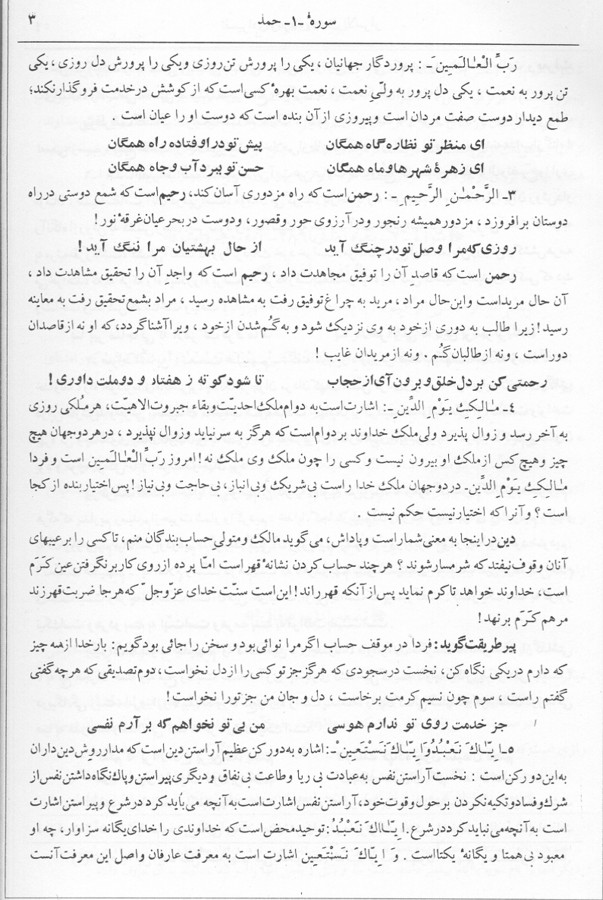 سورهٔ -۱- حمد ۳
رَبِّ الْعٰالَمِینَ -: پروردگار جهانیان ، یکی را پرورش تن روزی ویکی را پرورش دل روزی ، یکی
تن پرور به نعمت ، یکی دل پرور به ولیّ نعمت ، نعمت بهرهٔ کسی است که از کوشش درخدمت فروگذار نکند؛
طمع دیدار دوست صفت مردان است و پیروزی از آن بنده است که دوست او را عیان است .
ای منظر تو نظاره گاه همگان پیش تو در او فتاده راه همگان
ای زهرهٔ شهرها و ماه همگان حسن تو ببرد آب و جاه همگان
۳ـ الرَّحْمٰنِ الرَّحیمِ -: رحمن است که راه مزدوری آسان کند، رحیم است که شمع دوستی در راه
دوستان برافروزد ، مزدور همیشه رنجور ودر آرزوی حور وقصور، ودوست در بحر عیان غرقهٔ نور!
روزی که مرا وصل تو در چنگ آید از حال بهشتیان مرا ننگ آید !
رحمن است که قاصدِ آن را توفیق مجاهدت داد ، رحیم است که واجدِ آن را تحقیق مشاهدت داد ،
آن حال مرید است و این حال مراد ، مرید به چراغ توفیق رفت به مشاهده رسید ، مراد بشمع تحقیق رفت به معاینه
رسید! زیرا طالب به دوری از خود به وی نزدیک شود و به گم شدن از خود ، ویرا آشنا گردد، که او نه از قاصدان
دور است ، ونه از طالبان گم . ونه از مریدان غایب !
رحمتی کن بر دل خلق و برون آی از حجاب تا شود کوته ز هفتاد و دو ملت داوری !
۴ـ مٰالِکِ یَوْمِ الدِّینِ -: اشارت است به دوام ملک احدیّت وبقاء جبروت الاهیّت، هر مُلکی روزی
به آخر رسد و زوال پذیرد ولی ملک خداوند بر دوام است که هرگز به سر نیاید وزوال نپذیرد ، درهردوجهان هیچ
چیز وهیچ کس از ملک او بیرون نیست وکسی را چون ملک وی ملک نه ! امروز رَبِّ الْعٰالَمینَ است و فردا
مٰالِکِ یَوْمِ الدِّینِ۔ در دوجهان ملک خدا راست بی شریک وبی انباز، بی حاجت وبی نیاز! پس اختیار بنده از کجا
است ؟ وآنرا که اختیار نیست حکم نیست .
دین در اینجا به معنی شمار است و پاداش، می گوید مالک ومتولی حساب بندگان منم ، تا کسی را بر عیبهای
آنان وقوف نیفتد که شرمسار شوند ؟ هرچند حساب کردن نشانهٔ قهر است امّا پرده از روی کار بر نگرفتن عین کَرَم
است، خداوند خواهد تا کرم نماید پس از آنکه قهر راند ! این است سنّت خدای عزّوجلّ که هرجا ضربت قهر زند
مرهم کَرَم برنهد !
پیر طریقت گوید: فردا در موقف حساب اگر مرا نوائی بود و سخن را جائی بود گویم : بار خدا از سه چیز
که دارم در یکی نگاه کن ، نخست در سجودی که هرگز جز تو کسی را از دل نخواست، دوم تصدیقی که هر چه گفتی
گفتم راست ، سوم چون نسیم کرمت برخاست ، دل و جان من جز تو را نخواست !
جز خدمت روی تو ندارم هوسی من بی تو نخواهم که بر آرم نفسی
۵ـ اِیّٰاکَ نَعْبُدُ وَ اِیّٰاکَ نَسْتَعینُ -: اشاره به دو رکن عظیم آراستن دین است که مدار روش دین داران
به این دو رکن است : نخست آراستن نفس به عبادت بی ریا وطاعت بی نفاق و دیگری پیراستن و پاک نگاه داشتن نفس از
شرک وفساد وتکیه نکردن بر حول وقوت خود، آراستن نفس اشارت است به آنچه می باید کرد در شرع و پیراستن اشارت
است به آنچه می نباید کرد در شرع. اِیّٰاکَ نَعْبُدُ : توحید محض است که خداوندی را خدای یگانه سزاوار، چه او
معبود بی همتا و یگانهٔ یکتا است . وَ اِیّٰاکَ نَسْتَعینُ اشارت است به معرفت عارفان واصل این معرفت آنست